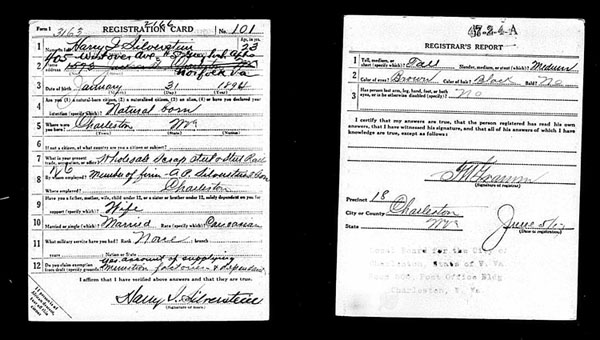 Form 1
3163
2166
REGISTRATION CARD
No. 101
1 Harry I. Silverstein
Age, in yrs. 23
405 Westover Ave.
2 address
Norfolk Va
3 Date of birth January 31 1894
(Month) (Day) (Year)
4 Are you (1) a natural-born citizen, (2) a naturalized citizen, (3) an alien, (4) or have you declared your
intention (specify which)? Natural born
5 Where were you born? Charleston W Va
(Town) (State) (Nation)
6 If not a citizen, of what country are you a citizen or subject?
7 What is your present trade, occupation, or office? Wholesale Scrap Steel & Steel Rail
8 By whom employed? Member of firm - A.P. Silverstein & Son
Where employed? Charleston
9 Have you a father, mother, wife, child under 12, or a sister or brother under 12, solely dependent on you for
support (specify which)? Wife
10 Married or single (which)? Married Race (specify which)? Caucasian
11 What military service have you had? Rank None branch
years Nation or State
12 Do you claim exemption from draft (specify grounds)? Yes account of supplying
Munition
I affirm that I have verified above answers and that they are true.
Harry I. Silverstein
(Signature or mark)
47-2-4-A
REGISTRAR'S REPORT
1 Tall, medium, or short (specify which)? Tall Slender, medium, or stout (which)? Medium
2 Color of eyes? Brown Color of hair? Black Bald? No
3 Has person lost arm, leg, hand, foot, or both
eyes, or is he otherwise disabled (specify)? No
I certify that my answers are true, that the person registered has read his own
answers, that I have witnessed his signature, and that all of his answers of which I have
knowledge are true, except as follows:
(Signature of registrar)
Precinct 18
City or County Charleston
State W Va
June 5/17
(Date of registration)
Local Board for the City of
Charleston, State of W. Va.
Post Office Bldg
Charleston, W. Va.